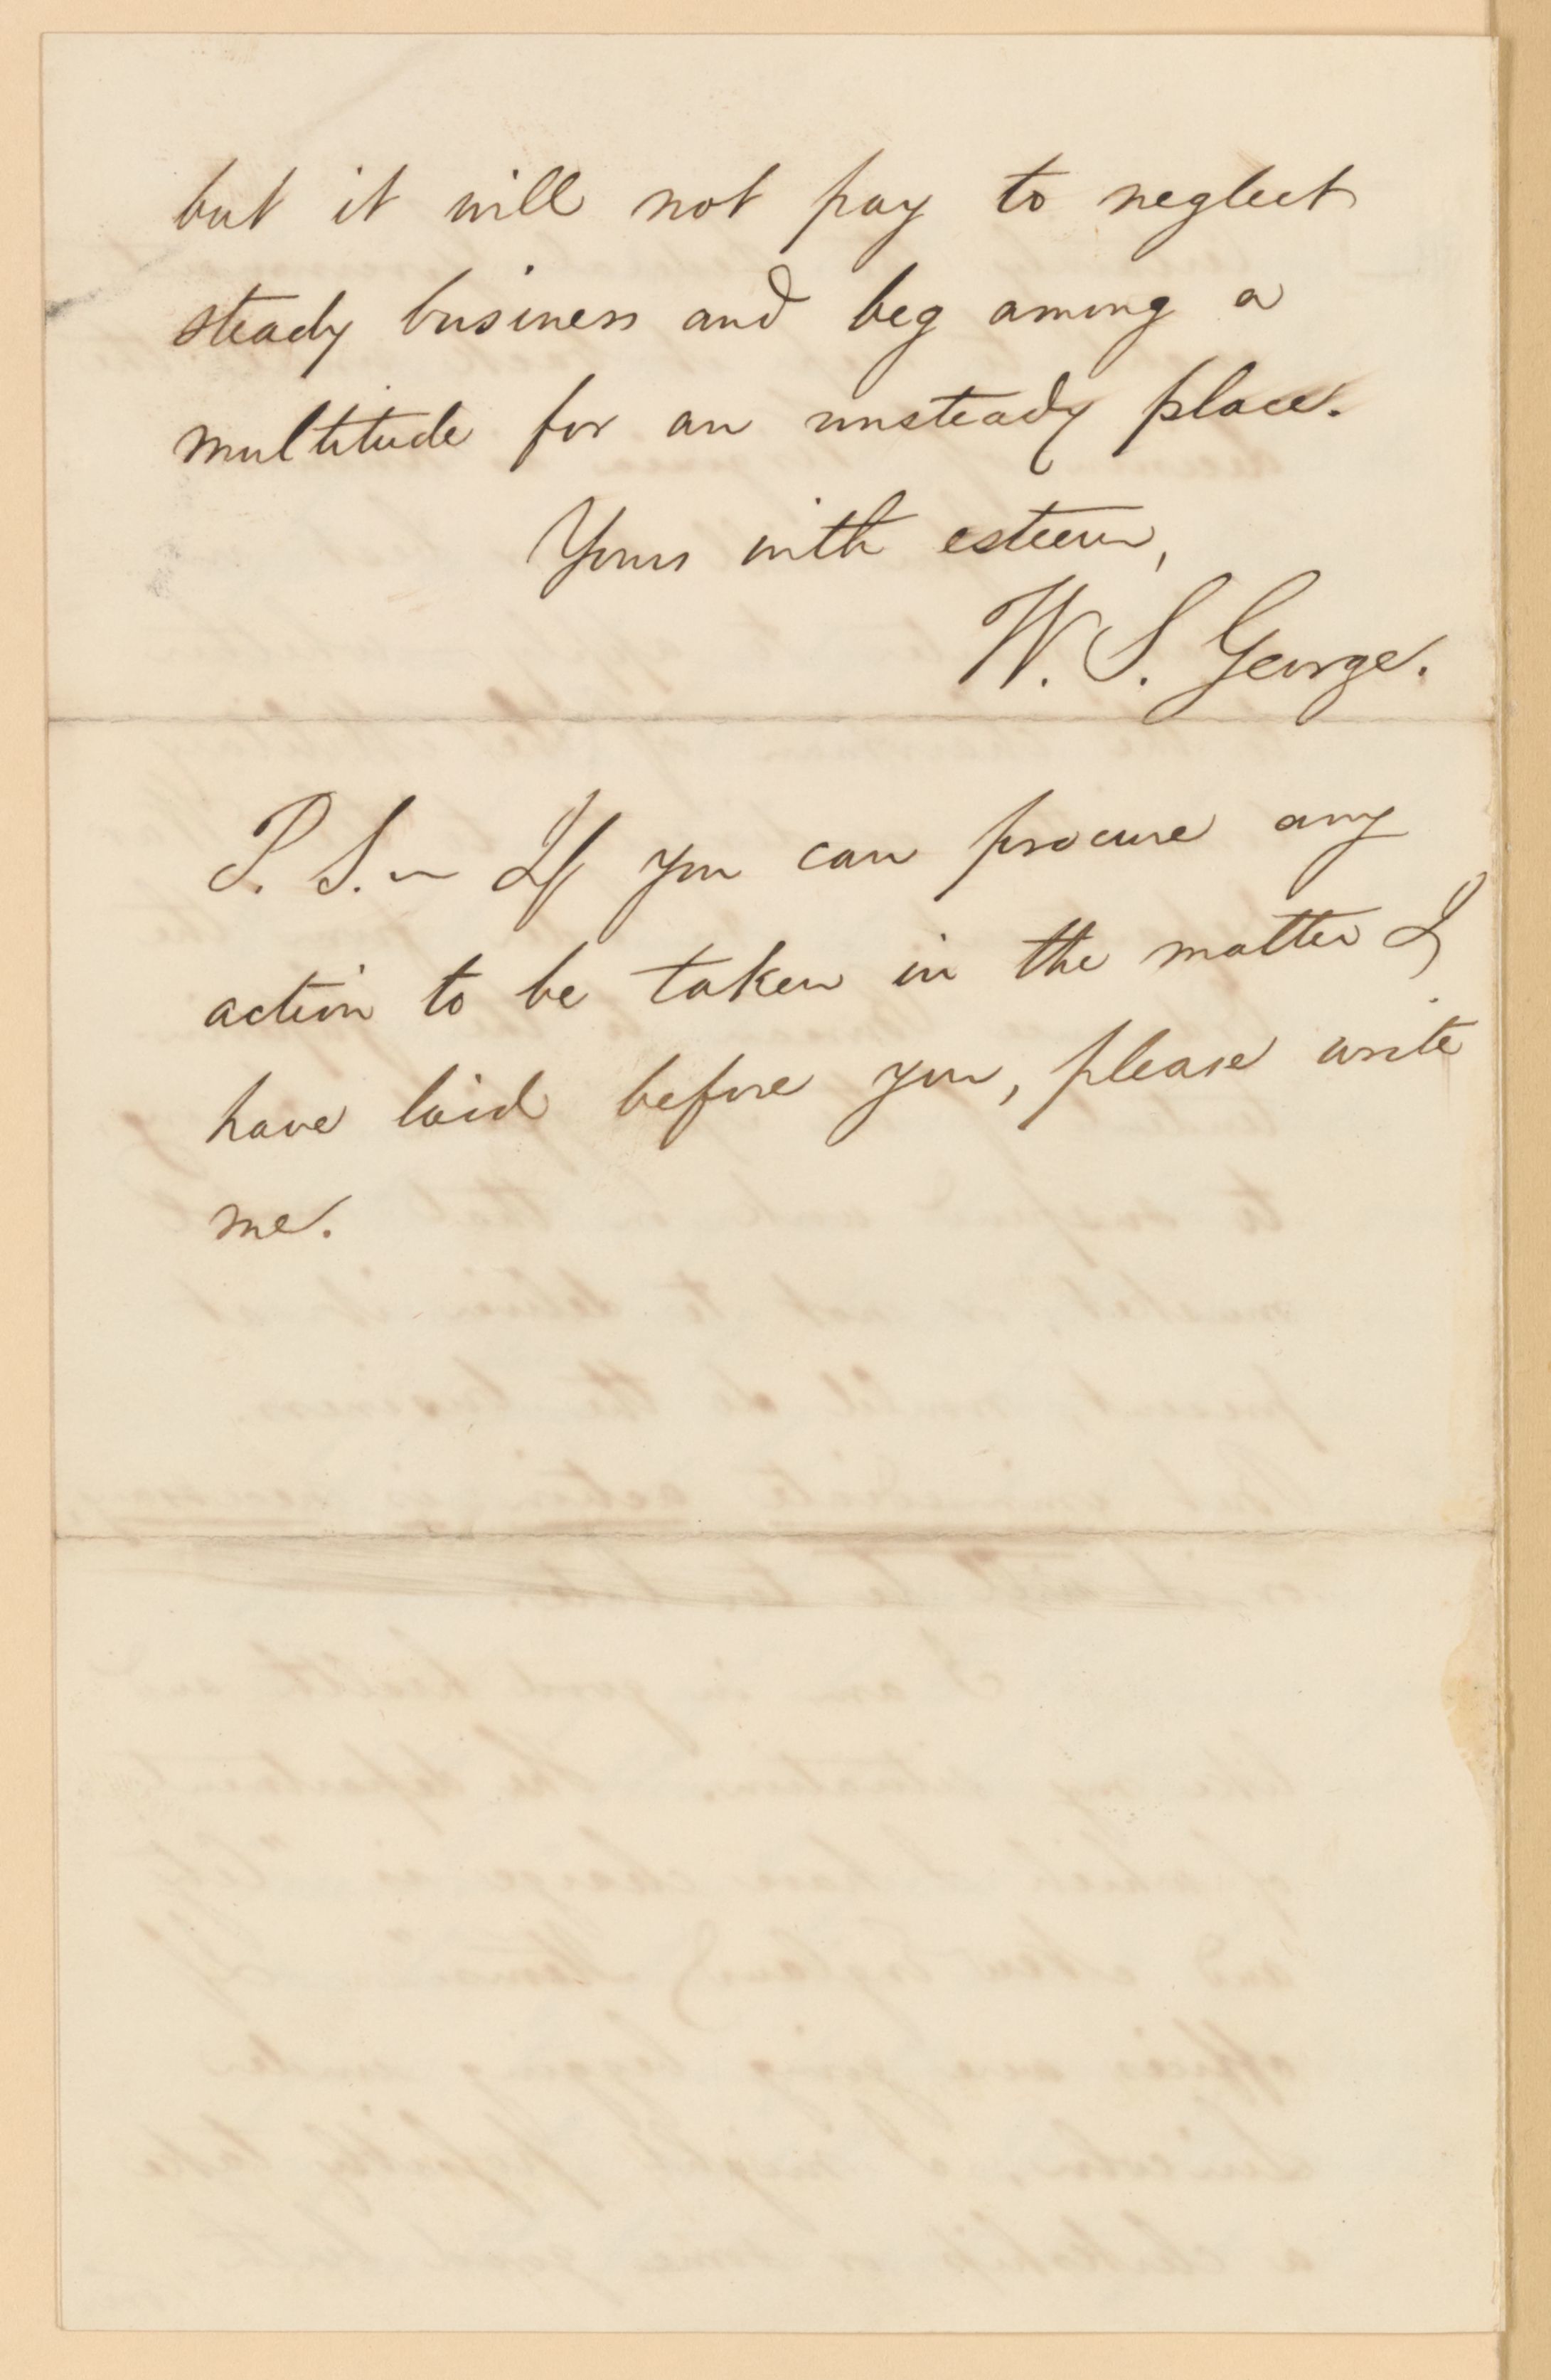 but it will not pay to neglect
steady business and beg among a
multitude for an unsteady place.
Yours with esteem,
W. S. George.
P. S. — If you can procure any
action to be taken in the matter I
have laid before you, please write
me.